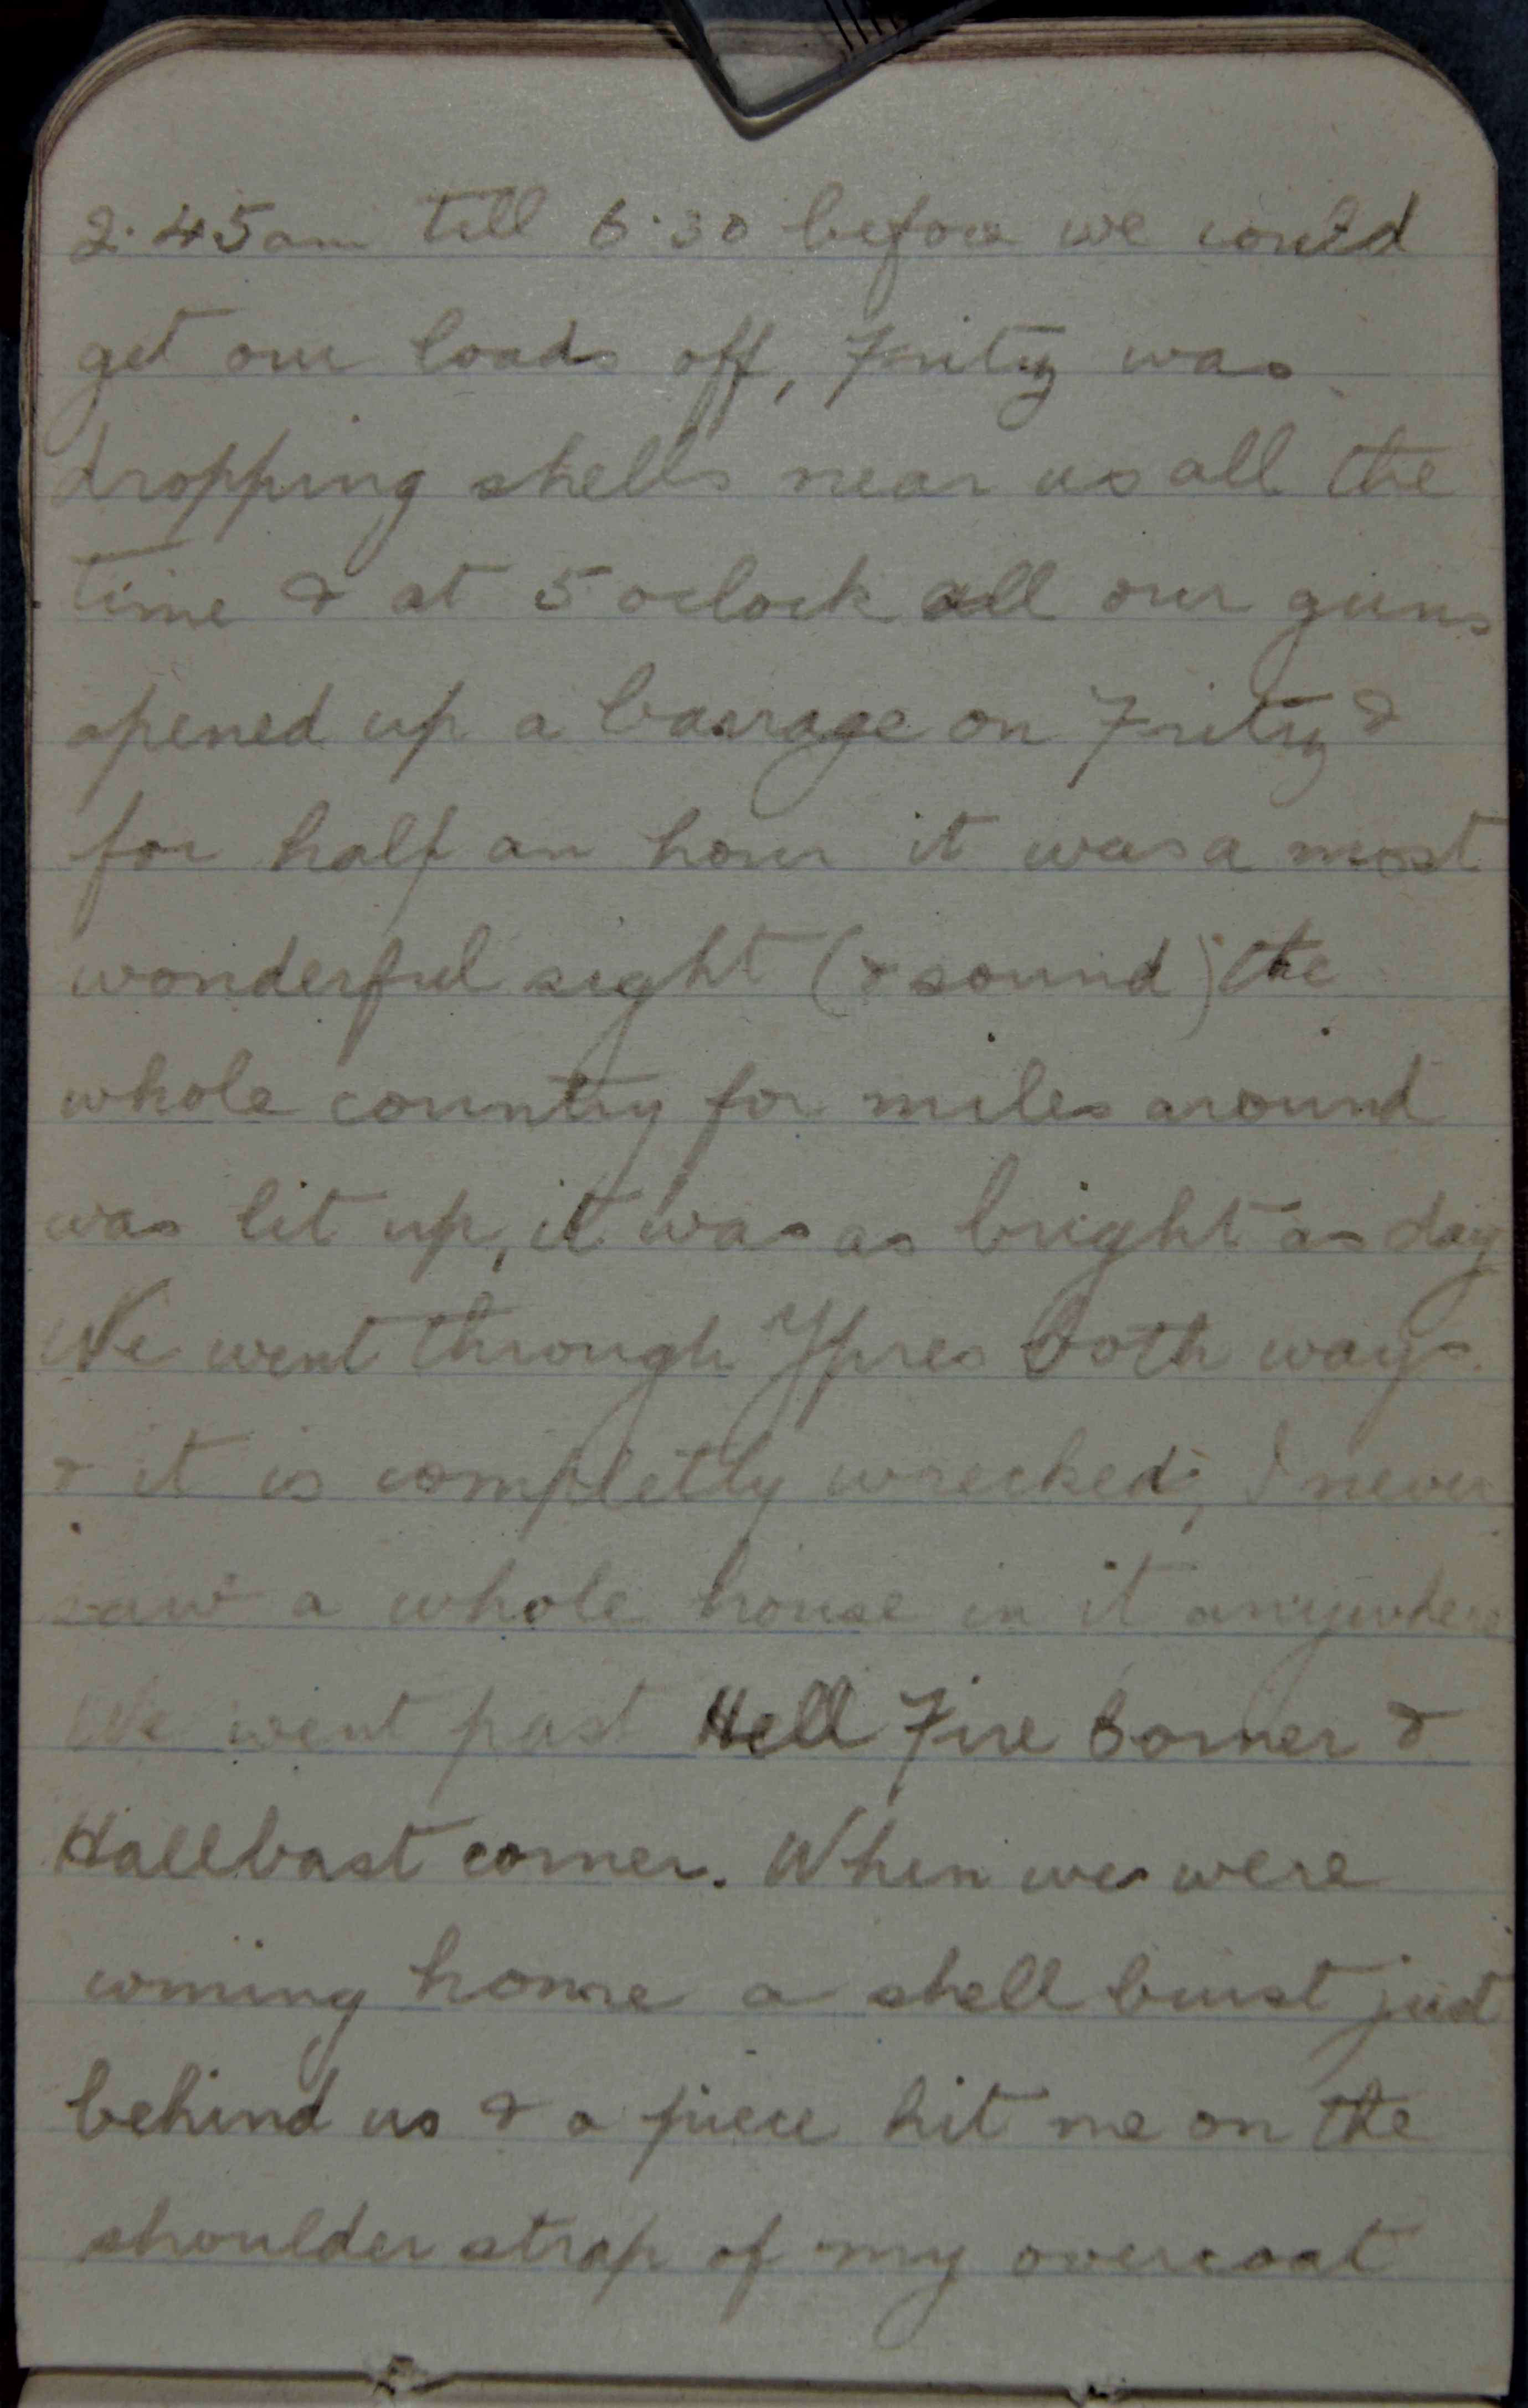 2.45am till 6.30 before we could
get our loads off, Fritz was
dropping shells near us all the
time & at 5 oclock all our guns
opened up a barrage on Fritz &
for half an hour it was a most
wonderful sight (& sound) the
whole country for miles around
was lit up, it was as bright as day
We went through Ypres both ways
& it is completly wrecked, I never
saw a whole house in it anywhere
We went past Hell Fire Corner &
Hallbast corner. When we were
coming home a shell burst just
behind us & a piece hit me on the
shoulder strap of my overcoat